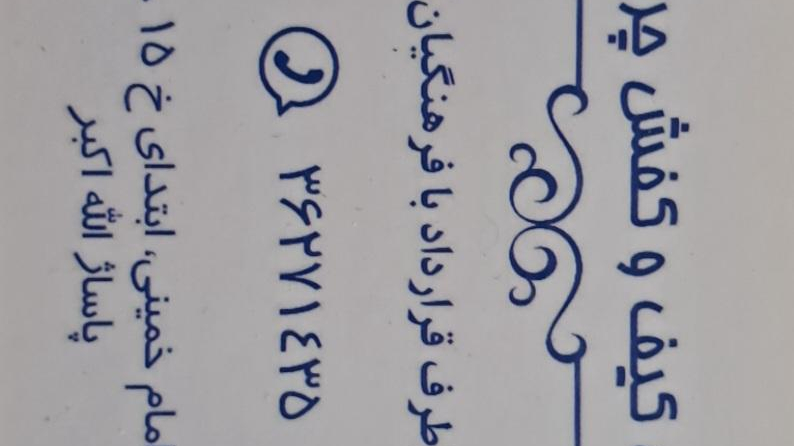 کیف و کفش چر
طرف قرارداد با فرهنگیان
۳۶۲۷۱٤۳۵
مام خمینی، ابتدای خ ۱۵
پاساژ الله اکبر